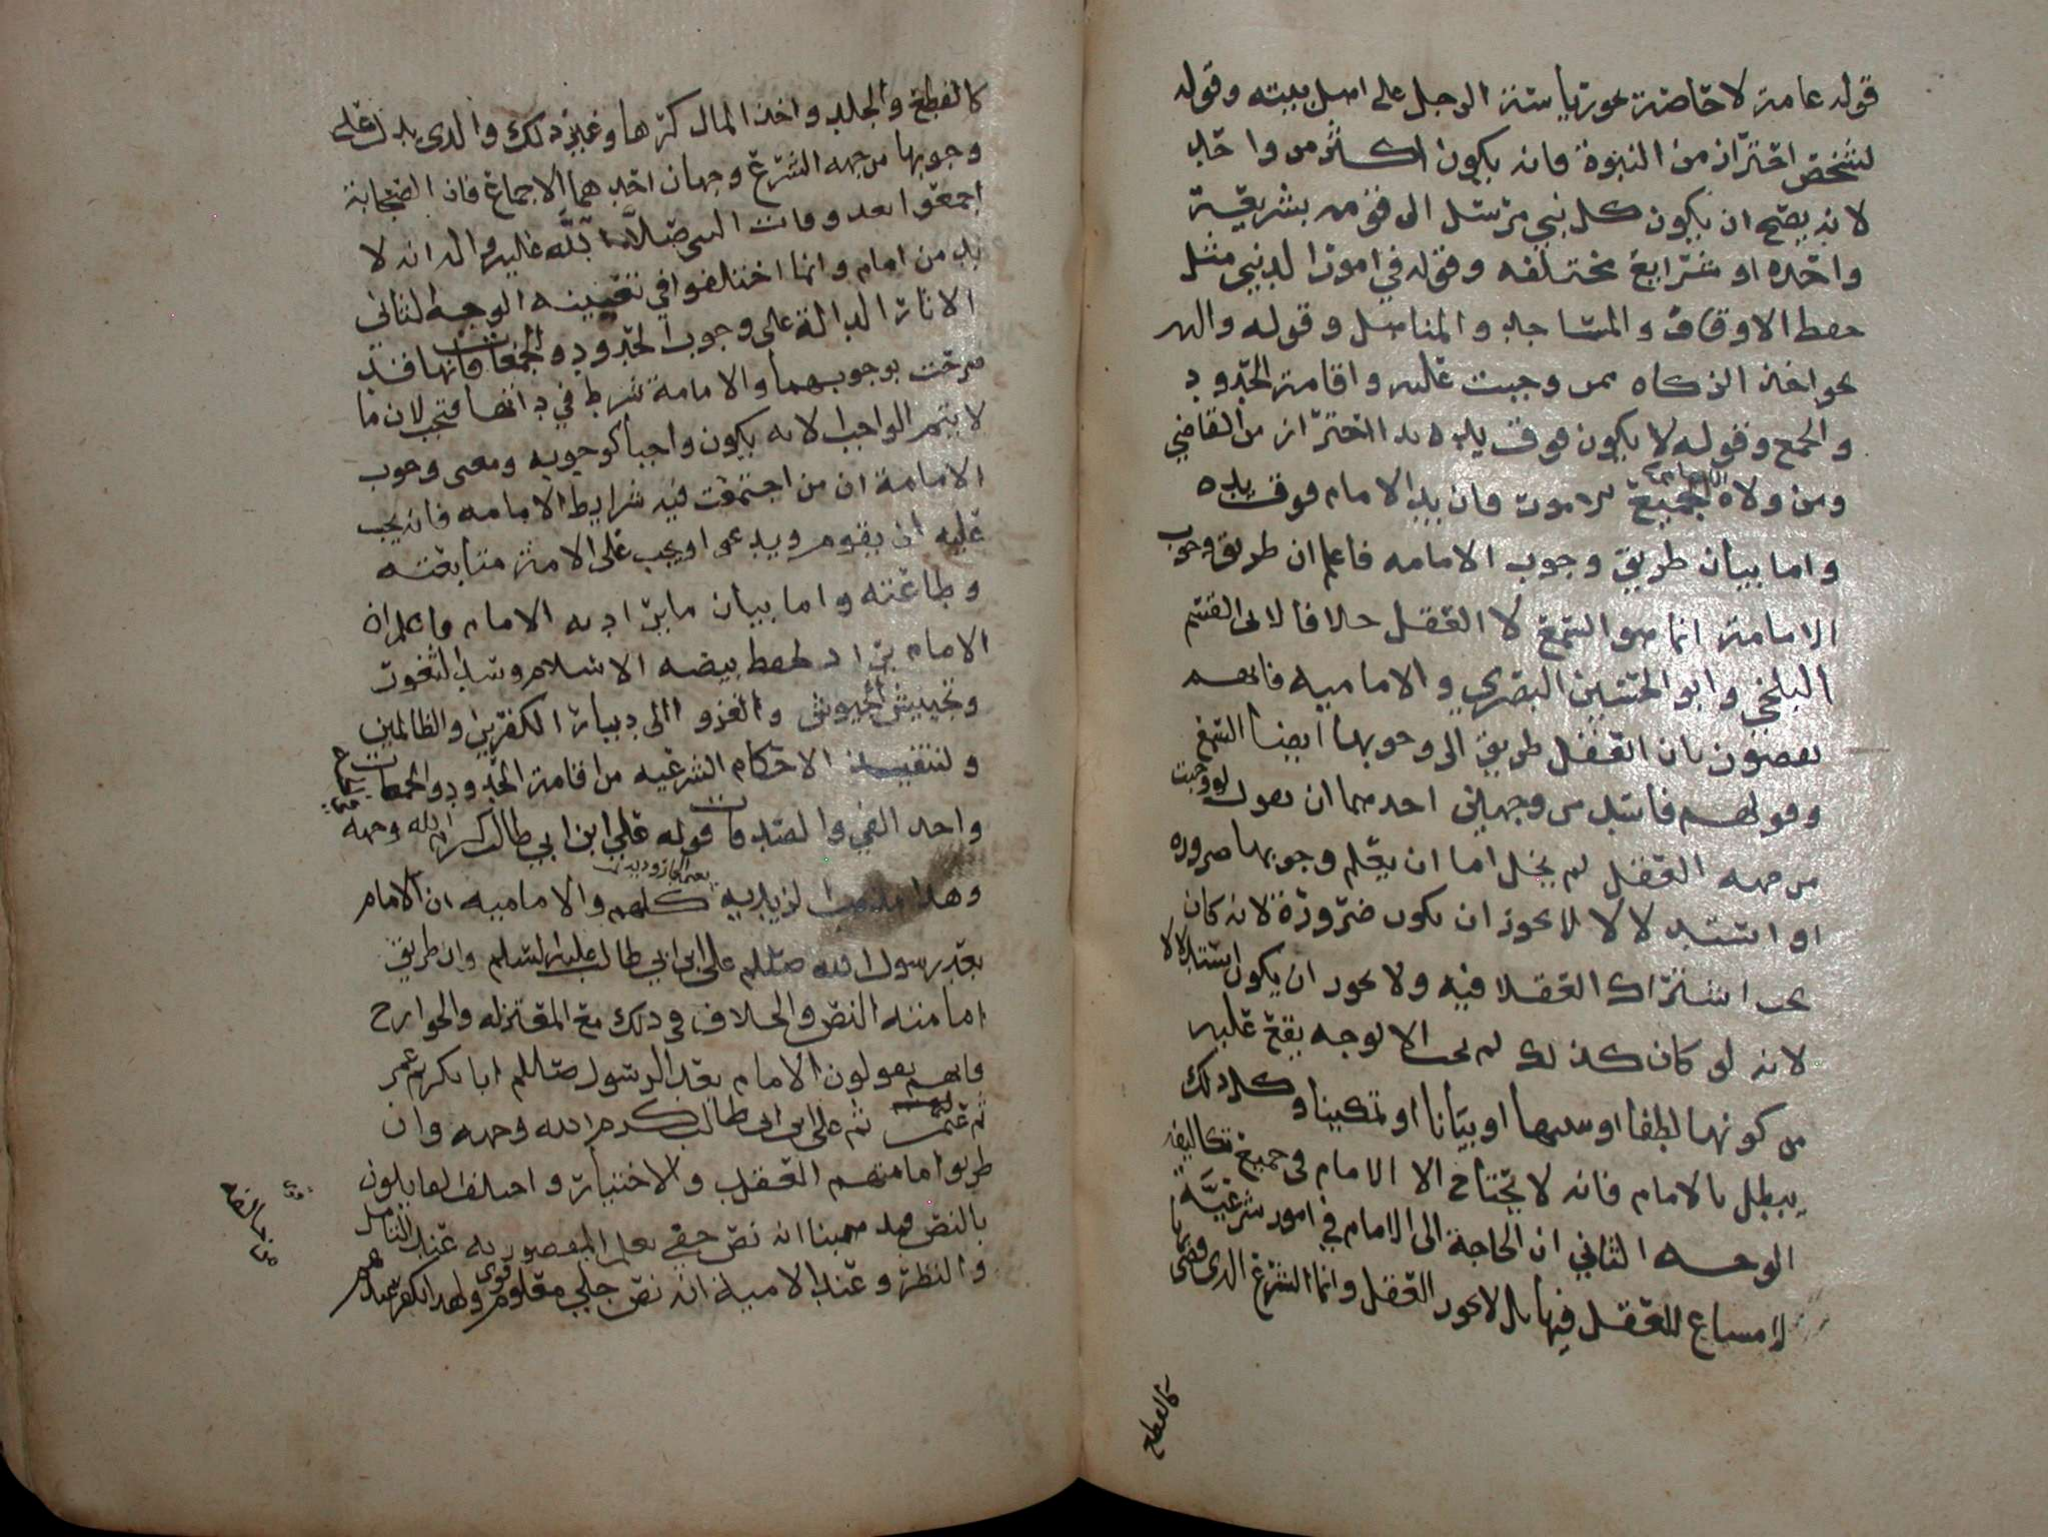 قوله عامة لا خاصة نحو رياسة الرجل على اهل بيته وقوله
لشخص احتراز من النبوة فانه يكون اكثر من واحد
لانه يصح ان يكون كل نبي مرسل الى قومه بشريعة
واحده او شرايع مختلفه وقوله في امور الدين مثل
حفظ الاوقاف والمساجد والمناهل وقوله والدنيا
نحو اخذ الزكاه ممن وجبت عليه واقامة الحدود
والجمع وقوله لا يكون فوق يده يد احتراز من القاضي
ومن ولاه الامام جميع الامور فان يد الامام فوق يده
واما بيان طريق وجوب الامامه فاعلم ان طريق وجوب
الامامة انما هو السمع لا العقل خلافا لابي القسم
البلخي وابو الحسين البصري والامامية فانهم
يقضون بان العقل طريق الى وجوبها ايضا السمع
وقولهم فاسد من وجهين احدهما ان نقول لو وجبت
من جهه العقل لم يخل اما ان يعلم وجوبها ضروره
او استدلالا لا يجوز ان يكون ضرورة لانه كان
يجب اشتراك العقلا فيه ولا يجوز ان يكون استدلالا
لانه لو كان كذلك لم تجب الا لوجه يقع عليه
من كونها لطفا او بيانا او تمكينا وكل ذلك
يبطل بالامام فانه لا يحتاج الا الامام في جميع تكاليفه
الوجه الثاني ان الحاجة الى الامام في امور شرعية
لا مساغ للعقل فيها بل لا يجوز العقل وانما الشرع الذي قضى بها
كالقطع
كالقطع والجلد واخذ المال كرها وغير ذلك والذي يدل على
وجوبها من جهه الشرع وجهان احدهما الاجماع فان الصحابة
اجمعوا بعد وفات النبي صلى الله عليه واله انه لا
بد من امام وانما اختلفوا في تعيينه الوجه الثاني
الاثار الدالة على وجوب الحدود والجمعات فانها قد
صرحت بوجوبهما والامامة شرط في ادائها فتجب لان ما
لا يتم الواجب الا به يكون واجبا كوجوبه ومعنى وجوب
الامامة ان من اجتمعت فيه شرايط الامامه فانه يجب
عليه ان يقوم ويدعو ويجب على الامة متابعته
وطاعته واما بيان ما يراد به الامام فاعلم ان
الامام يراد لحفظ بيضه الاسلام وسد الثغور
وتجييش الجيوش والغزو الى ديار الكفرين والظالمين
ولتنفيذ الاحكام الشرعيه من اقامة الحدود والجمعات
واخذ الفي والصدقات قوله علي ابن ابي طالب كرم الله وجهه
وهذا مذهب الزيديه كلهم والاماميه ان الامام
بعد رسول الله صللم علي ابن ابي طالب عليه السلم وان طريق
امامته النص والخلاف في ذلك مع المعتزله والخوارج
فانهم يقولون الامام بعد الرسول صللم ابا بكر ثم عمر
ثم عثمن ثم علي ابن ابي طالب كرم الله وجهه وان
طريق امامتهم العقد والاختيار واختلف القايلون
بالنص فمذهبنا انه نص خفي يعلم المقصود به عند التامل
والنظر وعند الامامية انه نص جلي معلوم ولهذا